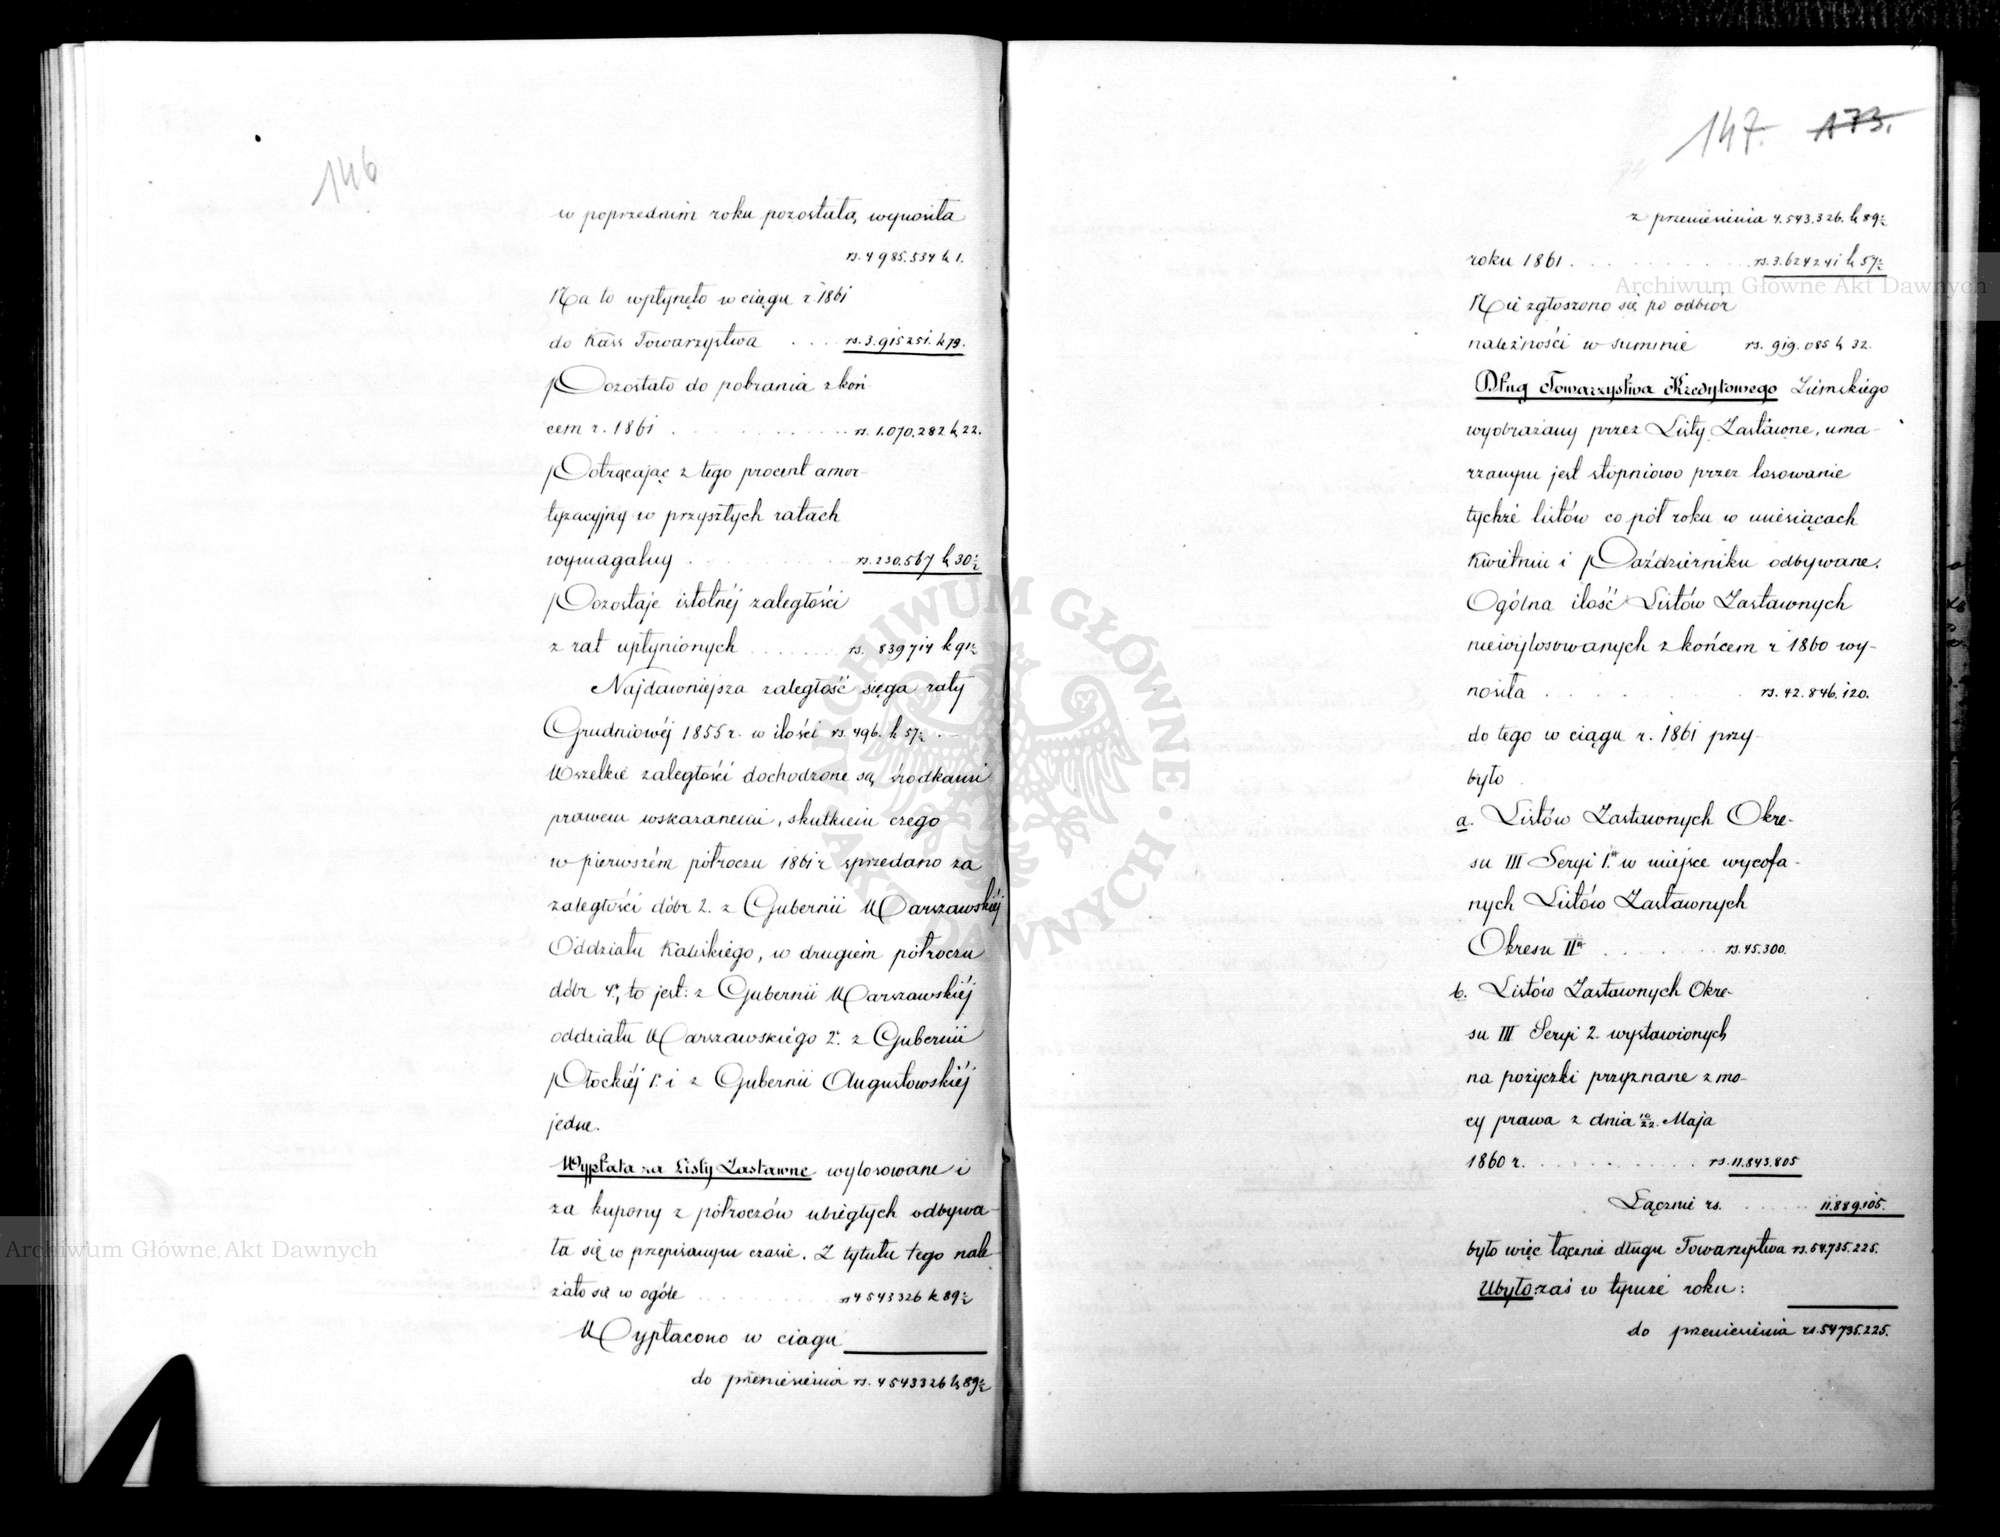 146
w poprzednim roku pozostała, wynosiła
rs. 4 985.534 k 1.
Na to wpłynęło w ciągu r. 1861
do Kass Towarzystwa . . . . rs. 3.915 251. k 79.
Pozostało do pobrania z koń-
cem r. 1861 . . . . . . . . . . rs. 1.070.282 k 22.
Potrącając z tego procent amor-
tyzacyjny w przyszłych ratach
wymagalny . . . . . . . . . . rs. 230.567 k 30½
Pozostaje istotnéj zaległości
z rat upłynionych . . . . . . . rs. 839 714 k 91½
Najdawniejsza zaległość sięga raty
Grudniowéj 1855 r. w ilości rs. 496. k 57½. —
Wszelkie zaległości dochodzone są, środkami
prawem wskazanemi, skutkiem czego
w pierwszém półroczu 1861 r sprzedano za
zaległości dóbr 2. z Gubernii Warszawskiéj
Oddziału Kaliskiego, w drugiem półroczu
dóbr 4, to jest: z Gubernii Warszawskiéj
oddziału Warszawskiégo 2. z Gubernii
Płockiéj 1. i z Gubernii Augustowskiéj
jedne.
Wypłata za Listy Zastawne wylosowane i
za kupony z półroczów ubiegłych odbywa-
ła się w przepisanym czasie. Z tytułu tego nale-
żało się w ogóle . . . . . . . . . . rs 4 543 326 k 89½
Wypłacono w ciągu
do przeniesienia rs. 4 543326 k 89½
147. 173.
z przeniesienia 4.543.326. k 89½
roku 1861 . . . . . . . . . . rs. 3.624241 k 57½
Nie zgłoszono się po odbiór
należności w summie rs. 919.085 k 32.
Dług Towarzystwa Kredytowego Ziemskiego
wyobrażany przez Listy Zastawne, uma-
rzanym jest stopniowo przez losowanie
tychże listów co pół roku w miesiącach
Kwietniu i Październiku odbywane.
Ogólna ilość Listów Zastawnych
niewylosowanych z końcem r 1860 wy-
nosiła . . . . . . . . . . rs. 42.846.120.
do tego w ciągu r. 1861 przy-
było
a. Listów Zastawnych Okre-
su III Seryi 1. w miejsce wycofa-
nych Listów Zastawnych
Okresu II . . . . . . . rs. 45.300.
b. Listów Zastawnych Okre-
su III Seryi 2. wystawionych
na pożyczki przyznane z mo-
cy prawa z dnia 10/22. Maja
1860 r. . . . . . . . . . . . rs. 11.843.805
Łącznie rs. . . . . . . . 11.889.105.
było więc łącznie długu Towarzystwa rs. 54.735.225.
Ubyło zaś w tymże roku:
do przeniesienia rs. 54735.225.
Archiwum Główne Akt Dawnych
Archiwum Główne Akt Dawnych
ARCHIWUM GŁÓWNE AKT DAWNYCH